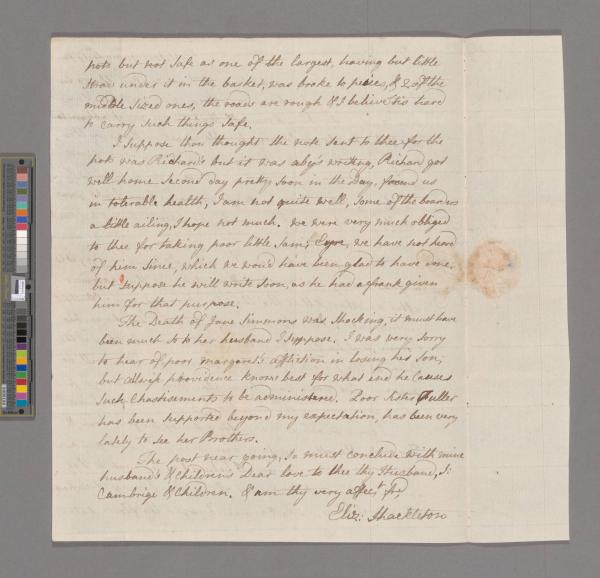 pots but not safe as one of the largest, having but little
straw under it in the basket, was broke to peices, & 2 of the
middle sized ones, the roads are rough & I believe tis hard
to carry such things safe.
I suppose thou thought the note sent to thee for the
pots was Richard's but it was aby's writing, Richard got
well home second day pretty soon in the day, found us
in tolerable health, I am not quite well, some of the boarders
a little ailing, I hope not much. we were very much obliged
to thee for taking poor little Sam: Eyre, we have not heard
of him since, which we wou'd have been glad to have done,
but suppose he will write soon, as he had a frank given
him for that purpose.
The Death of Jane Simmons was shocking, it must have
been much so to her husband I suppose. I was very sorry
to hear of poor margaret's affliction in losing her son,
but allwise providence knows best for what end he causes
such Chastisements to be administered. Poor sister Fuller
has been supported beyond my expectation, has been very
lately to see her Brothers.
The post near going, so must conclude with mine
husband's & Children's Dear love to thee thy Husband, S:
Cambrige & Children. & am thy very affect. frd
Eliz: Shackleton